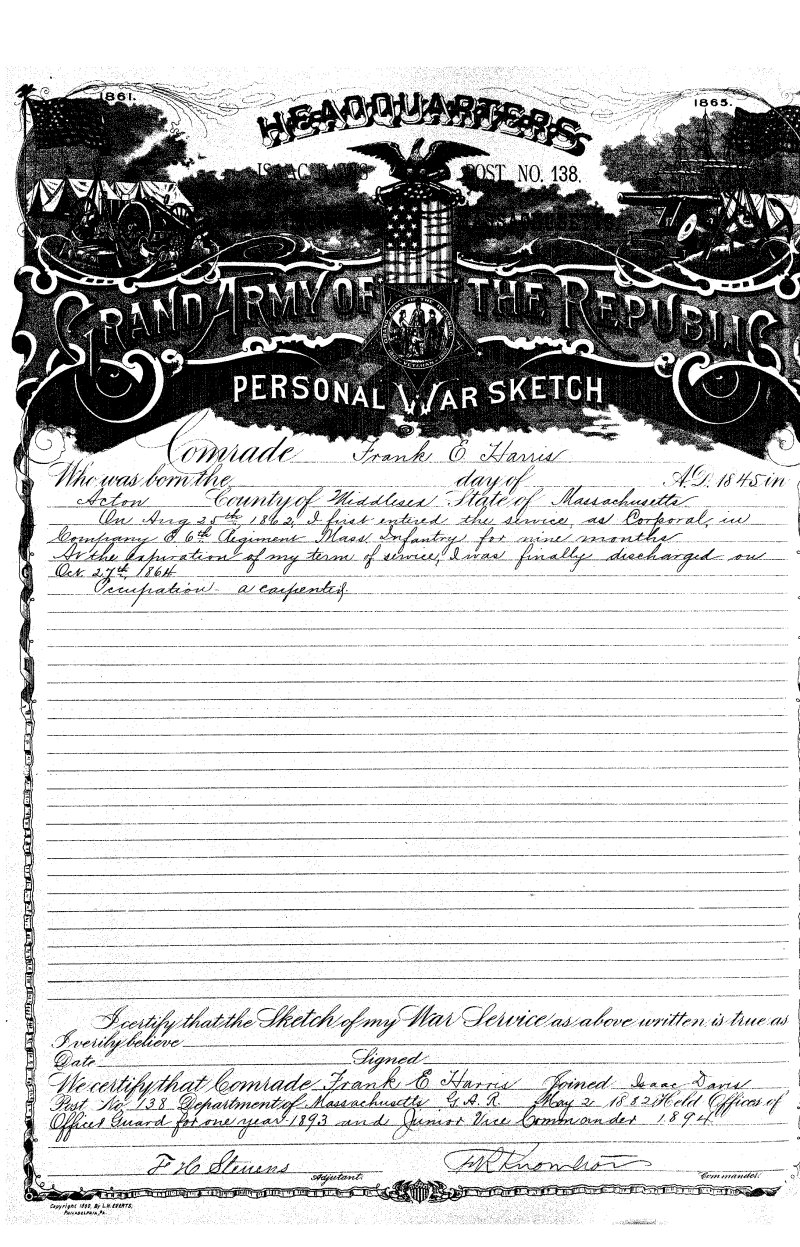 1861.
1865.
HEADQUARTERS
ISAAC DAVIS POST NO. 138.
MASSACHUSETTS
GRAND ARMY OF THE REPUBLIC
PERSONAL WAR SKETCH
Comrade Frank E Harris
Who was born the day of A.D. 1845 in
Acton County of Middlesex State of Massachusetts
On Aug 25th 1862, I first entered the service, as Corporal, in
Company E 6th Regiment Mass Infantry for nine months
At the expiration of my term of service, I was finally discharged on
Oct. 27th, 1864
Occupation - a carpenter.
I certify that the Sketch of my War Service as above written is true as
I verily believe
Date Signed
We certify that Comrade Frank E Harris Joined Isaac Davis
Post No. 138 Department of Massachusetts G.A.R. May 2 1882 Held Offices of
Officer Guard for one year 1893 and Junior Vice Commander 1894.
F H Stevens
Adjutant.
Commander.
Copyright 1890, By L.H. EVERTS,
PHILADELPHIA, PA.